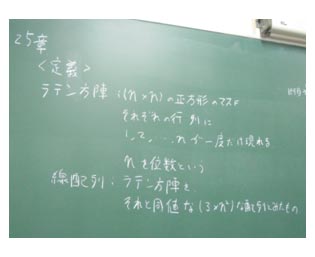 25章
<定義>
ラテン方陣:(n×n)の正方形のマス目
それぞれの行 列に
1, 2, ..., nが一度だけ現れる
nを位数という
線配列:ラテン方陣を、
それと同値な(3×n²)な配列とみたもの